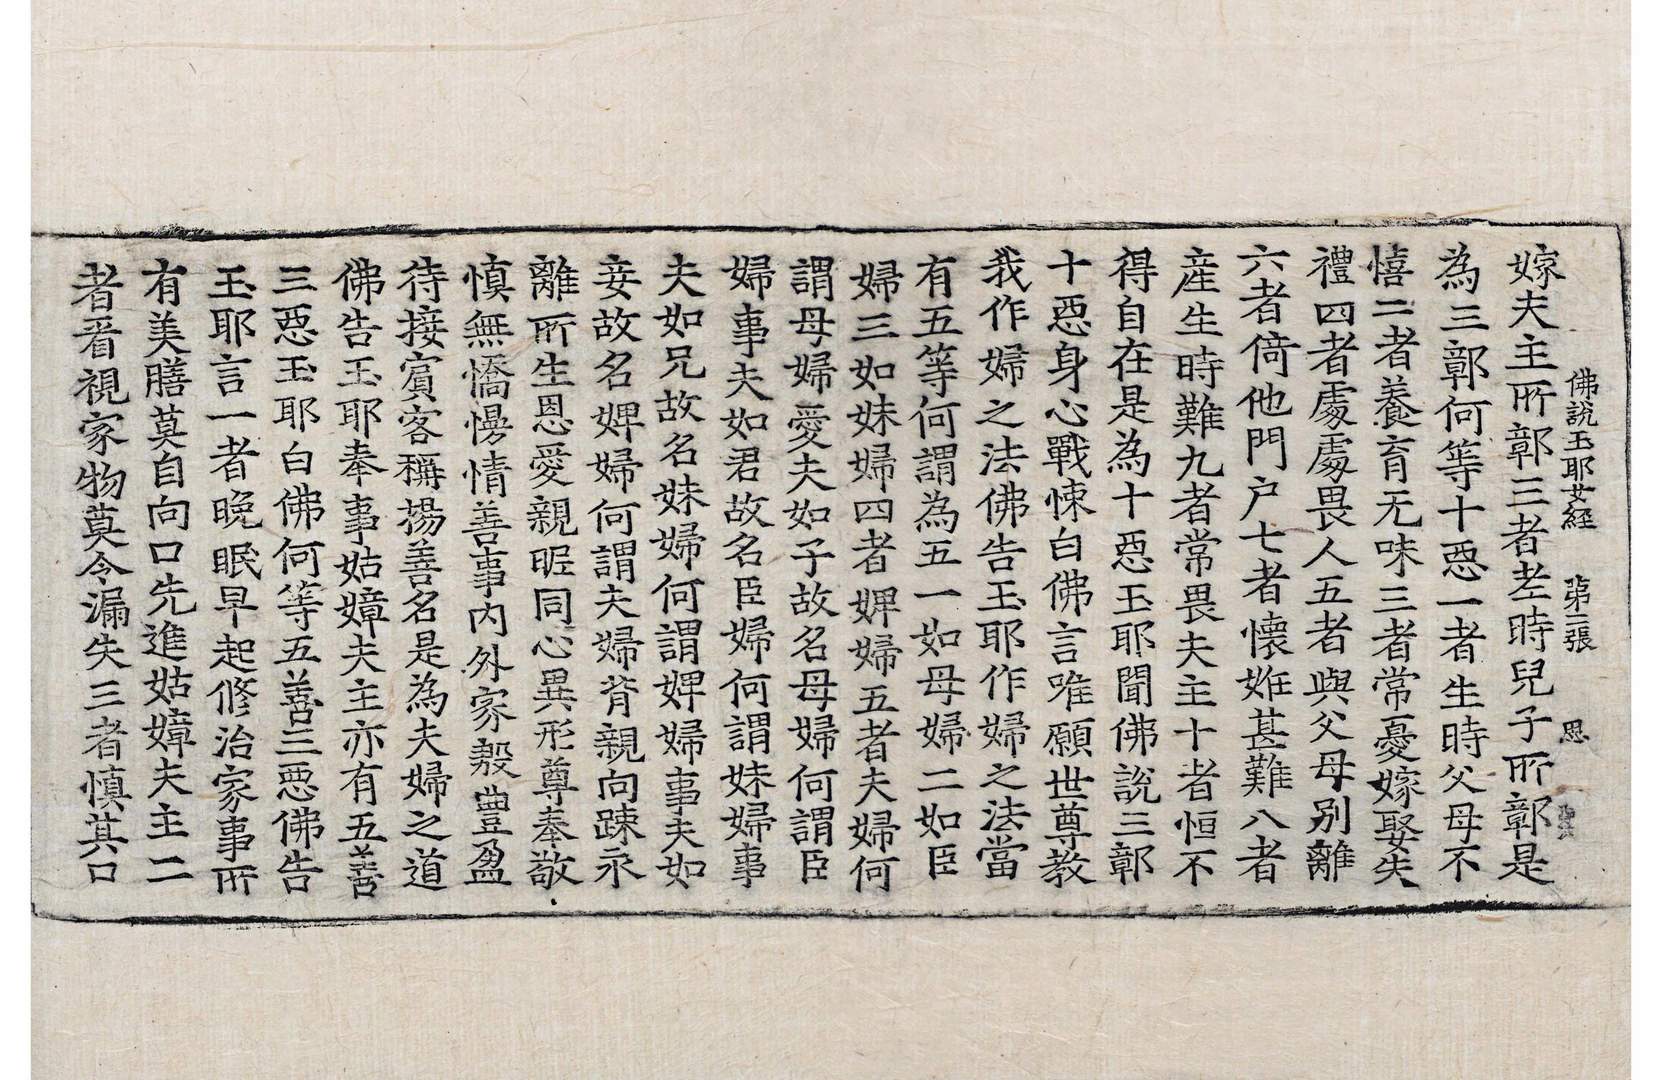 佛說玉耶女経 苐二張 恩
嫁夫主所鄣三者老時兒子所鄣是
為三鄣何等十惡一者生時父母不
憘二者養育无味三者常憂嫁娶失
禮四者處處畏人五者與父母別離
六者倚他門户七者懷姙甚難八者
產生時難九者常畏夫主十者恒不
得自在是為十惡玉耶聞佛說三鄣
十惡身心戰悚白佛言唯願世尊教
我作婦之法佛告玉耶作婦之法當
有五等何謂為五一如母婦二如臣
婦三如妹婦四者婢婦五者夫婦何
謂母婦愛夫如子故名母婦何謂臣
婦事夫如君故名臣婦何謂妹婦事
夫如兄故名妹婦何謂婢婦事夫如
妾故名婢婦何謂夫婦背親向踈永
離所生恩愛親昵同心異形尊奉敬
慎無憍慢情善事內外家殷豊盈
待接賓客稱揚善名是為夫婦之道
佛告玉耶奉事姑嫜夫主亦有五善
三惡玉耶白佛何等五善三惡佛告
玉耶言一者晚眠早起修治家事所
有美膳莫自向口先進姑嫜夫主二
者看視家物莫令漏失三者慎其口